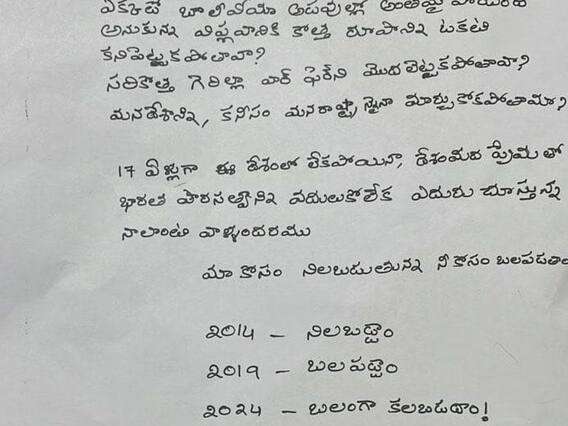 ఎక్కడ బొలీవియా అడవుల్లో అంతమై పోయింది
అనుకున్న విప్లవానికి కొత్త రూపాన్ని ఒకటి
కనిపెట్టుకపోతావా?
సరికొత్త గెరిల్లా వార్ ఫేర్‌ని మొదలెట్టుకపోతావా?
మనదేశాన్ని, కనీసం మనరాష్ట్రాన్నైనా మార్చుకోకపోతామా?
17 ఏళ్లుగా ఈ దేశంలో లేకపోయినా, దేశంమీద ప్రేమతో
భారత పౌరసత్వాన్ని వదులుకోలేక ఎదురు చూస్తున్న
నాలాంటి వాళ్ళందరము
మా కోసం నిలబడుతున్న నీ కోసం బలపడతాం
2014 – నిలబడ్డాం
2019 – బలపడ్డాం
2024 – బలంగా కలబడదాం!